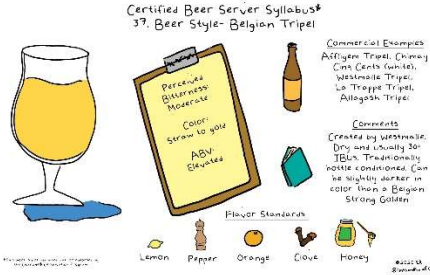 Certified Beer Server Syllabus*
37. Beer Style- Belgian Tripel
Perceived
Bitterness:
Moderate
Color:
Straw to gold
ABV:
Elevated
Commercial Examples
Affligem Tripel, Chimay
Cinq Cents (white),
Westmalle Tripel,
La Trappe Tripel,
Allagash Tripel
Comments
Created by Westmalle.
Dry and usually 30+
IBUs. Traditionally
bottle conditioned. Can
be slightly darker in
color than a Belgian
Strong Golden
Flavor Standards
Lemon
Pepper
Orange
Clove
Honey